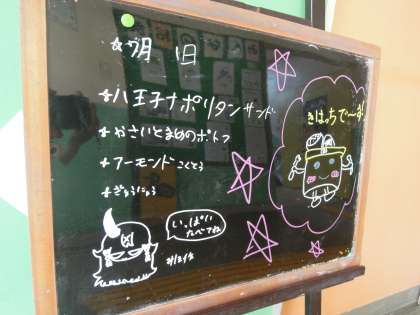 ☆7月1日
☆八王子ナポリタンサンド
☆やさいとまめのポトフ
☆アーモンドこくとう
☆ぎゅうにゅう
きはっちで〜す!
いっぱい
たべてね